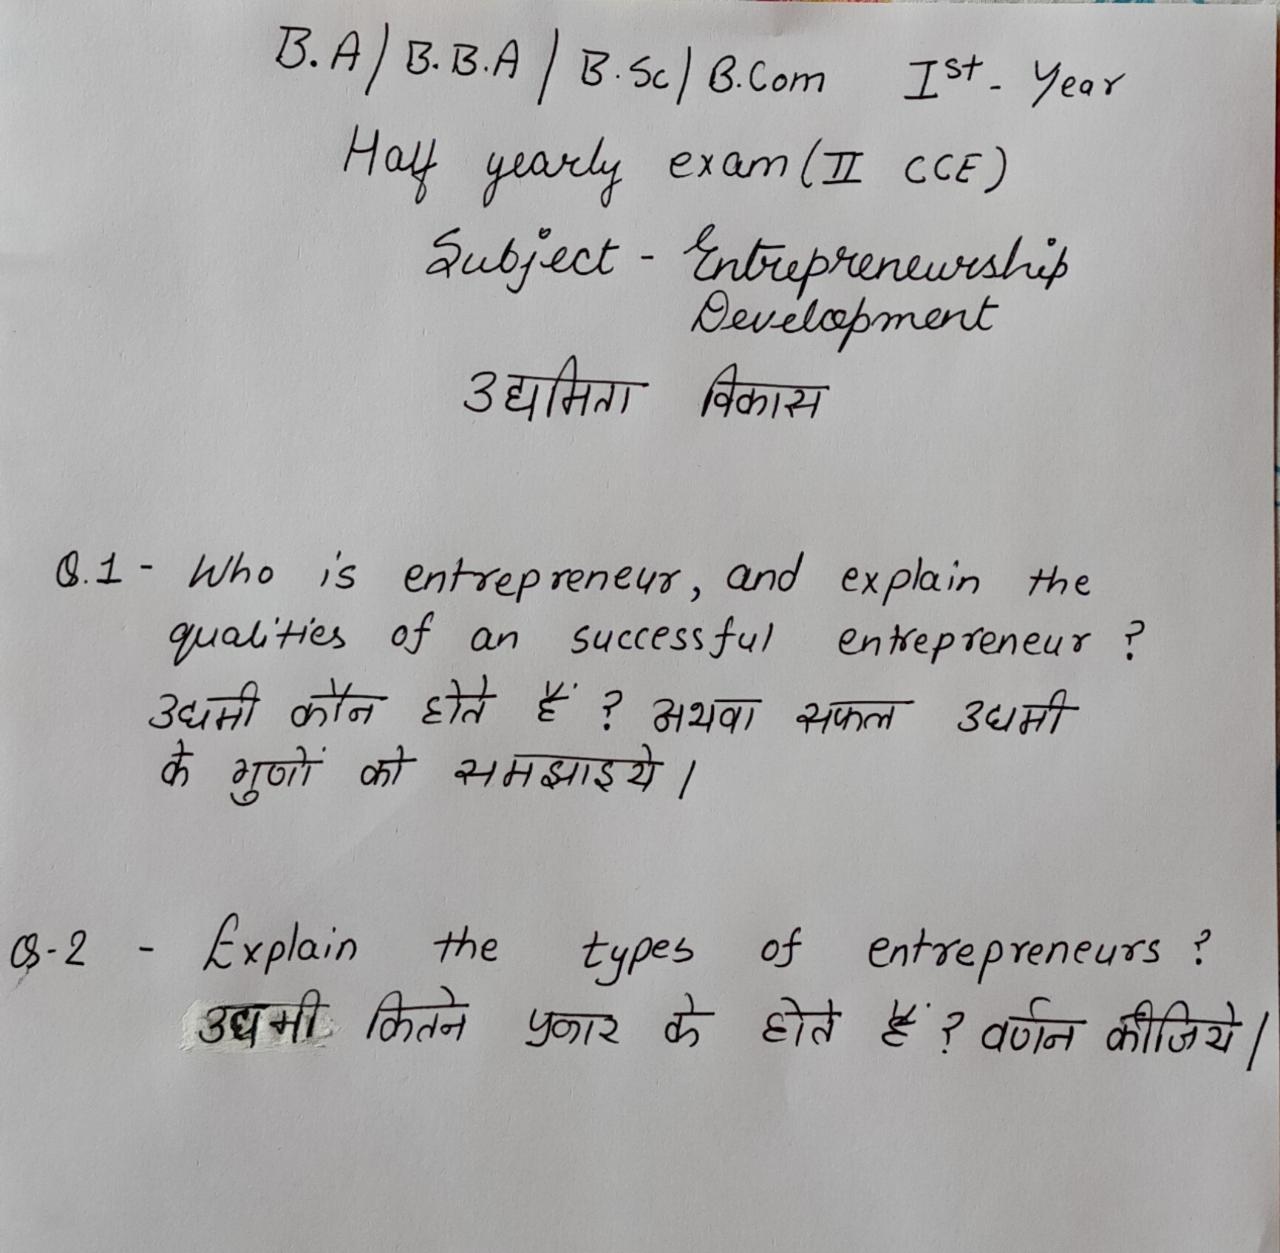 B.A/ B.B.A / B.Sc/ B.Com Ist- Year
Half yearly exam (II CCE)
Subject - Entrepreneurship
Development
उद्यमिता विकास
Q.1 - Who is entrepreneur, and explain the
qualities of an successful entrepreneur ?
उद्यमी कौन होते हैं ? अथवा सफल उद्यमी
के गुणों को समझाइये।
Q-2 - Explain the types of entrepreneurs ?
उद्यमी कितने प्रकार के होते हैं ? वर्णन कीजिये।